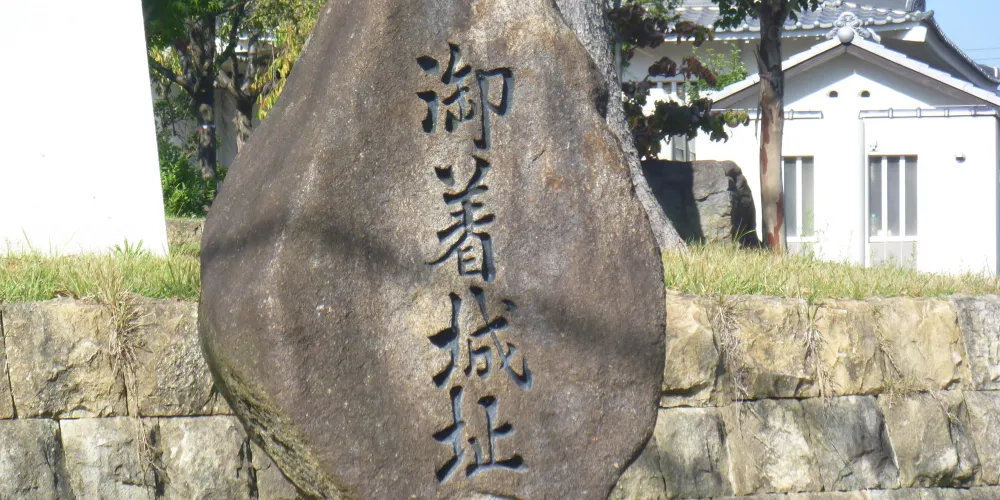 御着城址